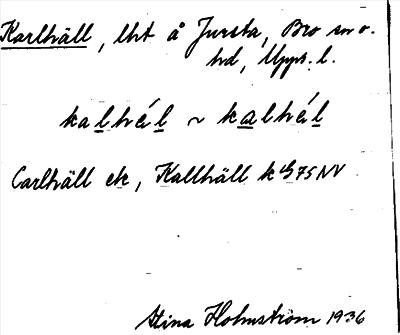 Karlhäll, lht å Jursta, Bro sn o.
hd, Uppl. l.
kalhɛ́l ~ kalhɛ́l
Carlhäll ek, Kallhäll k 75 NV
Stina Holmström 1936